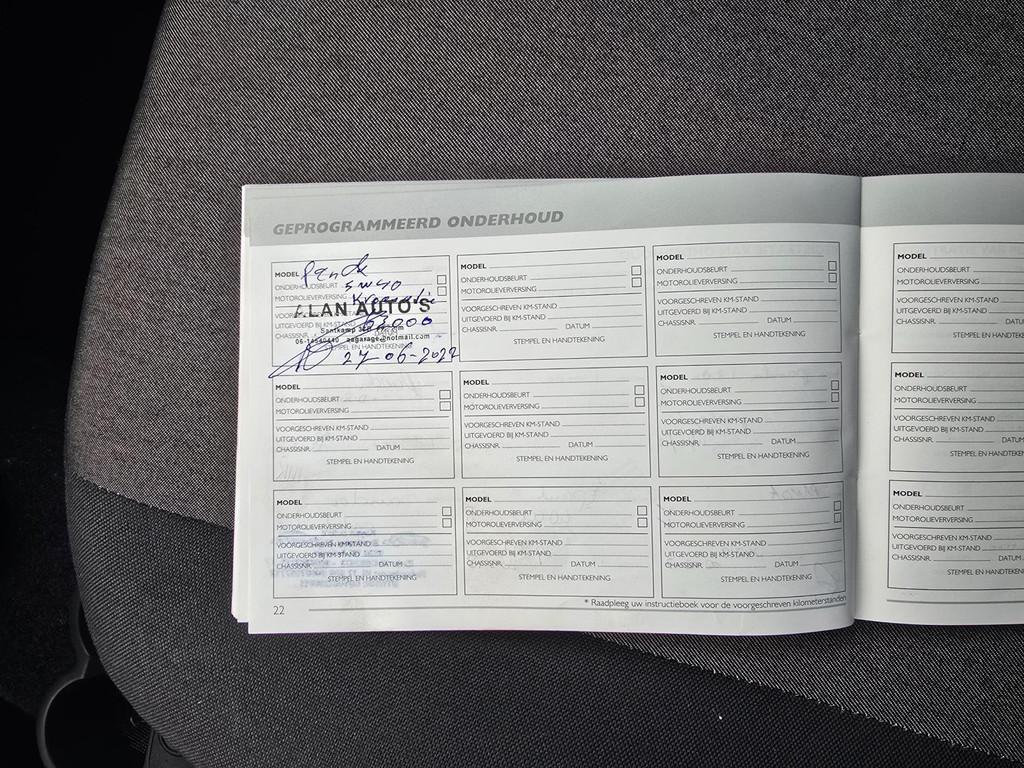 GEPROGRAMMEERD ONDERHOUD
MODEL Panda
ONDERHOUDSBEURT 5W40
MOTOROLIEVERVERSING
ALAN AUTO'S
UITGEVOERD BIJ KM-STAND
Santkamp
aagarage@hotmail.com
STEMPEL EN HANDTEKENING
27-06-2022
MODEL
ONDERHOUDSBEURT
MOTOROLIEVERVERSING
VOORGESCHREVEN KM-STAND
UITGEVOERD BIJ KM-STAND
CHASSISNR. DATUM
STEMPEL EN HANDTEKENING
MODEL
ONDERHOUDSBEURT
MOTOROLIEVERVERSING
VOORGESCHREVEN KM-STAND
UITGEVOERD BIJ KM-STAND
CHASSISNR. DATUM
STEMPEL EN HANDTEKENING
MODEL
ONDERHOUDSBEURT
MOTOROLIEVERVERSING
VOORGESCHREVEN KM-STAND
UITGEVOERD BIJ KM-STAND
CHASSISNR.
STEMPEL EN
MODEL
ONDERHOUDSBEURT
MOTOROLIEVERVERSING
VOORGESCHREVEN KM-STAND
UITGEVOERD BIJ KM-STAND
CHASSISNR. DATUM
STEMPEL EN HANDTEKENING
MODEL
ONDERHOUDSBEURT
MOTOROLIEVERVERSING
VOORGESCHREVEN KM-STAND
UITGEVOERD BIJ KM-STAND
CHASSISNR. DATUM
STEMPEL EN HANDTEKENING
MODEL
ONDERHOUDSBEURT
MOTOROLIEVERVERSING
VOORGESCHREVEN KM-STAND
UITGEVOERD BIJ KM-STAND
CHASSISNR. DATUM
STEMPEL EN HANDTEKENING
MODEL
ONDERHOUDSBEURT
MOTOROLIEVERVERSING
VOORGESCHREVEN KM-STAND
UITGEVOERD BIJ KM-STAND
CHASSISNR.
STEMPEL EN
MODEL
ONDERHOUDSBEURT
MOTOROLIEVERVERSING
VOORGESCHREVEN KM-STAND
UITGEVOERD BIJ KM-STAND
CHASSISNR. DATUM
STEMPEL EN HANDTEKENING
MODEL
ONDERHOUDSBEURT
MOTOROLIEVERVERSING
VOORGESCHREVEN KM-STAND
UITGEVOERD BIJ KM-STAND
CHASSISNR. DATUM
STEMPEL EN HANDTEKENING
MODEL
ONDERHOUDSBEURT
MOTOROLIEVERVERSING
VOORGESCHREVEN KM-STAND
UITGEVOERD BIJ KM-STAND
CHASSISNR. DATUM
STEMPEL EN HANDTEKENING
MODEL
ONDERHOUDSBEURT
MOTOROLIEVERVERSING
VOORGESCHREVEN KM-STAND
UITGEVOERD BIJ KM-STAND
CHASSISNR.
STEMPEL EN
* Raadpleeg uw instructieboek voor de voorgeschreven kilometerstanden
22